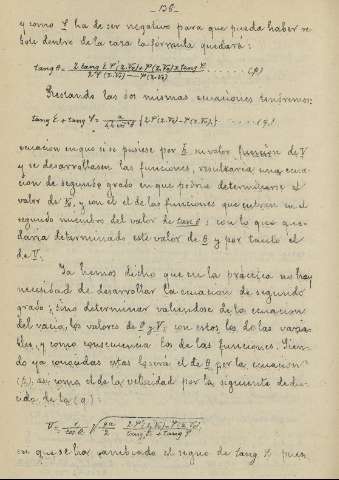 126.
y como φ ha de ser negativo para que pueda haber re
bote dentro de la cara la fórmula quedará:
tang θ =
Restando las dos mismas ecuaciones tendremos:
ecuacion en que si se pusiese por ξ su valor funcion de V
y se desarrollasen las funciones, resultaria una ecua
cion de segundo grado en que podria determinarse el
valor de V₀, y con el de las funciones que entran en el
segundo miembro del valor de tang θ; con lo que que
daria determinado este valor de θ y por tanto el
de V.
Ya hemos dicho que en la práctica no hay
necesidad de desarrollar la ecuacion de segundo
grado, sino determinar valiendose de la ecuacion
del vacio, los valores de y V; con estos, los de las varia
bles, y como consecuencia los de las funciones. Sien
do ya conocidas estas lo será el de θ por la ecuacion
(p), asi como el de la velocidad por la siguiente dedu
cida de la (q):
V =
en que se ha cambiado el signo de tang pues